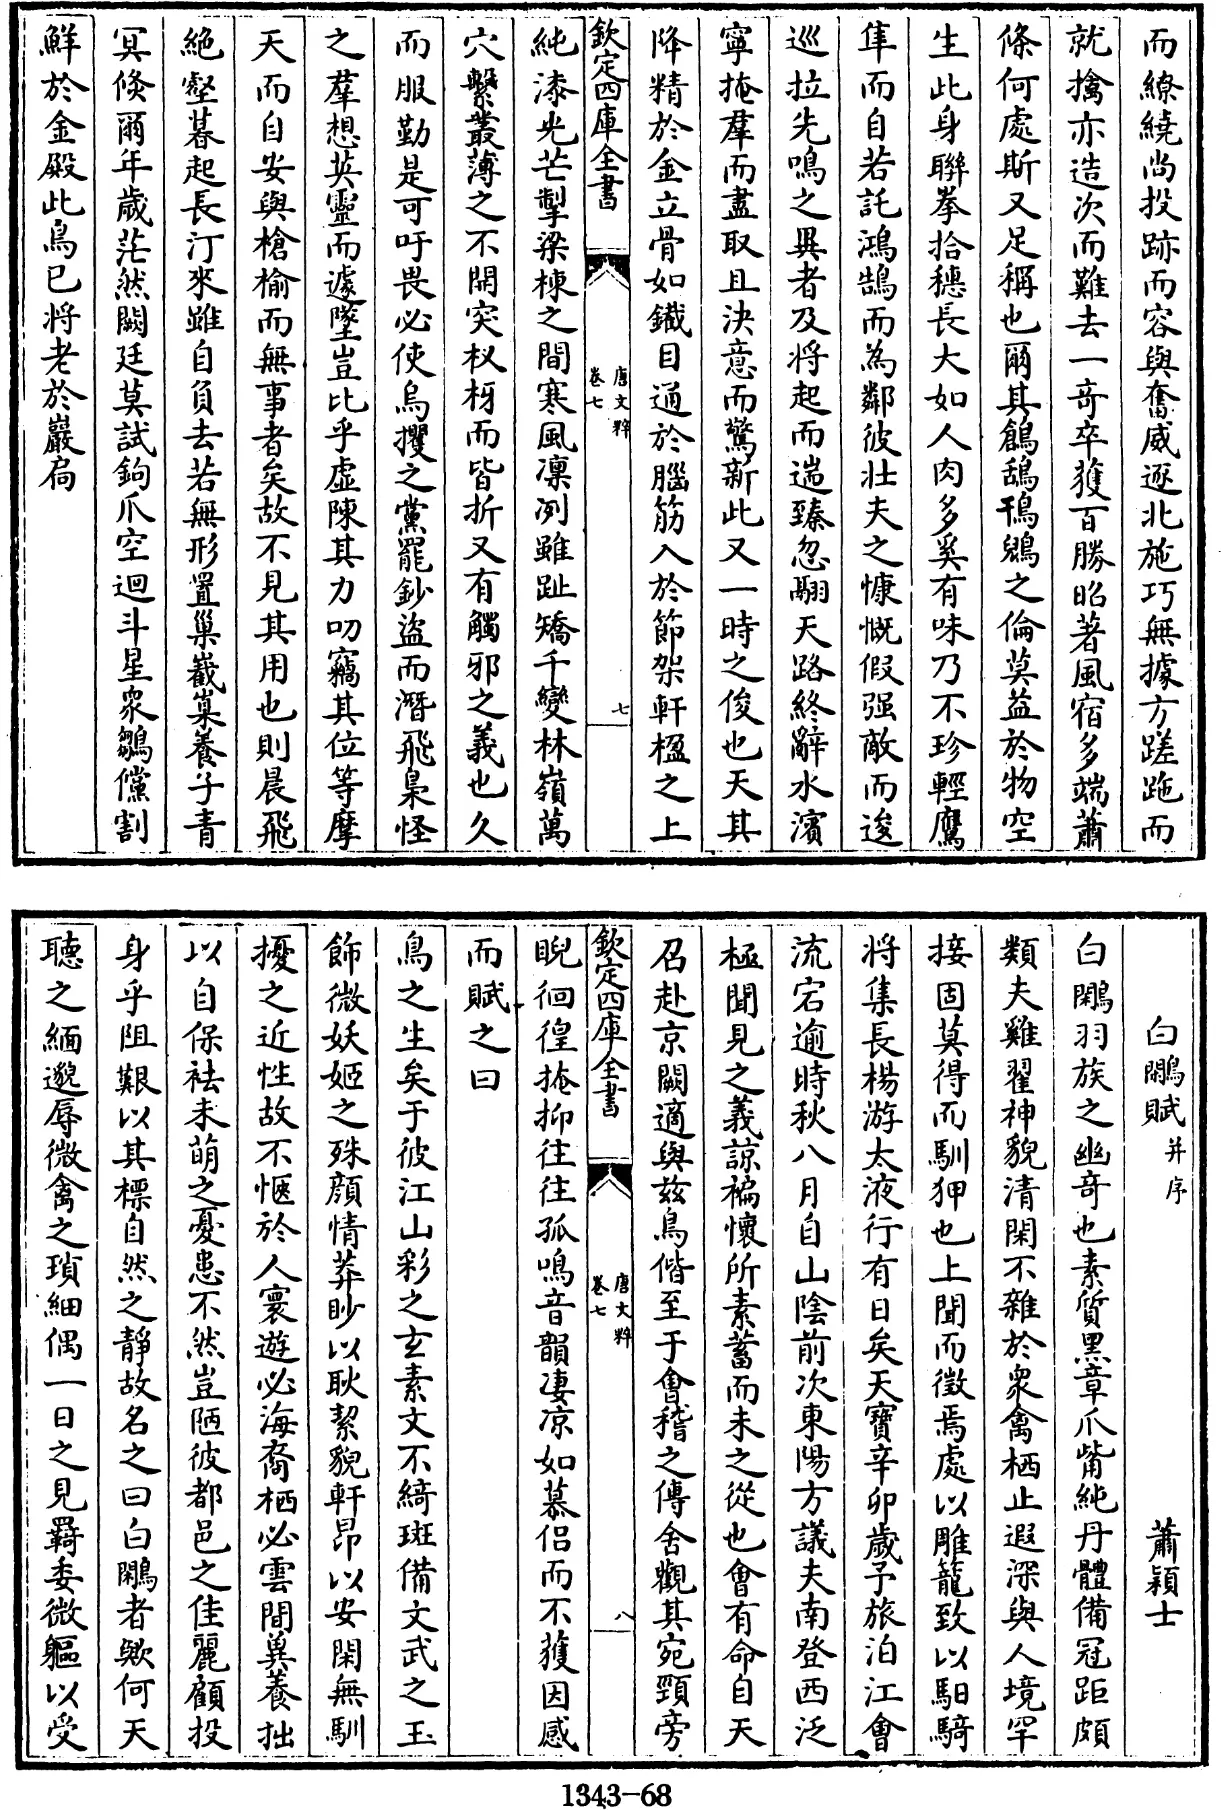 而繚繞尚投跡而容與奮威逐北施巧無據方蹉跎而
就擒亦造次而難去一奇卒獲百勝昭著風宿多端蕭
條何處斯又足稱也爾其鶬鴰鳵鷁之倫莫益於物空
生此身聯拳拾穗長大如人肉多奚有味乃不珍輕鷹
隼而自若託鴻鵠而為鄰彼壯夫之慷慨假强敵而逡
巡拉先鳴之異者及將起而遄臻忽翮天路終辭水濱
寧掩羣而盡取且決意而驚新此又一時之俊也天其
降精於金立骨如鐵目通於腦筋入於節架軒楹之上
欽定四庫全書
唐文粹
卷七
七
純漆光芒掣梁棟之間寒風凜洌雖趾矯千變林嶺萬
穴繫叢薄之不開突杈枒而皆折又有觸邪之義也久
而服勤是可吁畏必使烏攫之黨罷鈔盜而潛飛梟怪
之羣想英靈而遽墜豈比乎虛陳其力叨竊其位等摩
天而自安與槍榆而無事者矣故不見其用也則晨飛
絶壑暮起長汀來雖自負去若無形置巢巀嶪養子青
冥倐爾年歲茫然闕廷莫試鉤爪空迴斗星衆鶵儻割
鮮於金殿此鳥已將老於巖扃
白鷴賦并序
蕭穎士
白鷴羽族之幽奇也素質黑章爪觜純丹體備冠距頗
類夫雞翟神貌清閑不雜於衆禽栖止遐深與人境罕
接固莫得而馴狎也上聞而徵焉處以雕籠致以馹騎
將集長楊游太液行有日矣天寶辛卯歲予旅泊江會
流宕逾時秋八月自山陰前次東陽方議夫南登西泛
極聞見之義諒褊懷所素蓄而未之從也會有命自天
召赴京闕適與兹鳥偕至于會稽之傳舍觀其宛頸旁
欽定四庫全書
唐文粹
卷七
八
睨徊徨掩抑往往孤鳴音韻凄凉如慕侣而不獲因感
而賦之曰
鳥之生矣于彼江山彩之玄素文不綺斑備文武之玉
飾微妖姬之殊顔情莽眇以耿絜貌軒昂以安閑無馴
擾之近性故不愜於人寰遊必海裔栖必雲間異養拙
以自保祛未萌之憂患不然豈陋彼都邑之佳麗顧投
身乎阻艱以其標自然之靜故名之曰白鷴者歟何天
聽之緬邈辱微禽之瑣細偶一日之見羇委微軀以受
1343-68